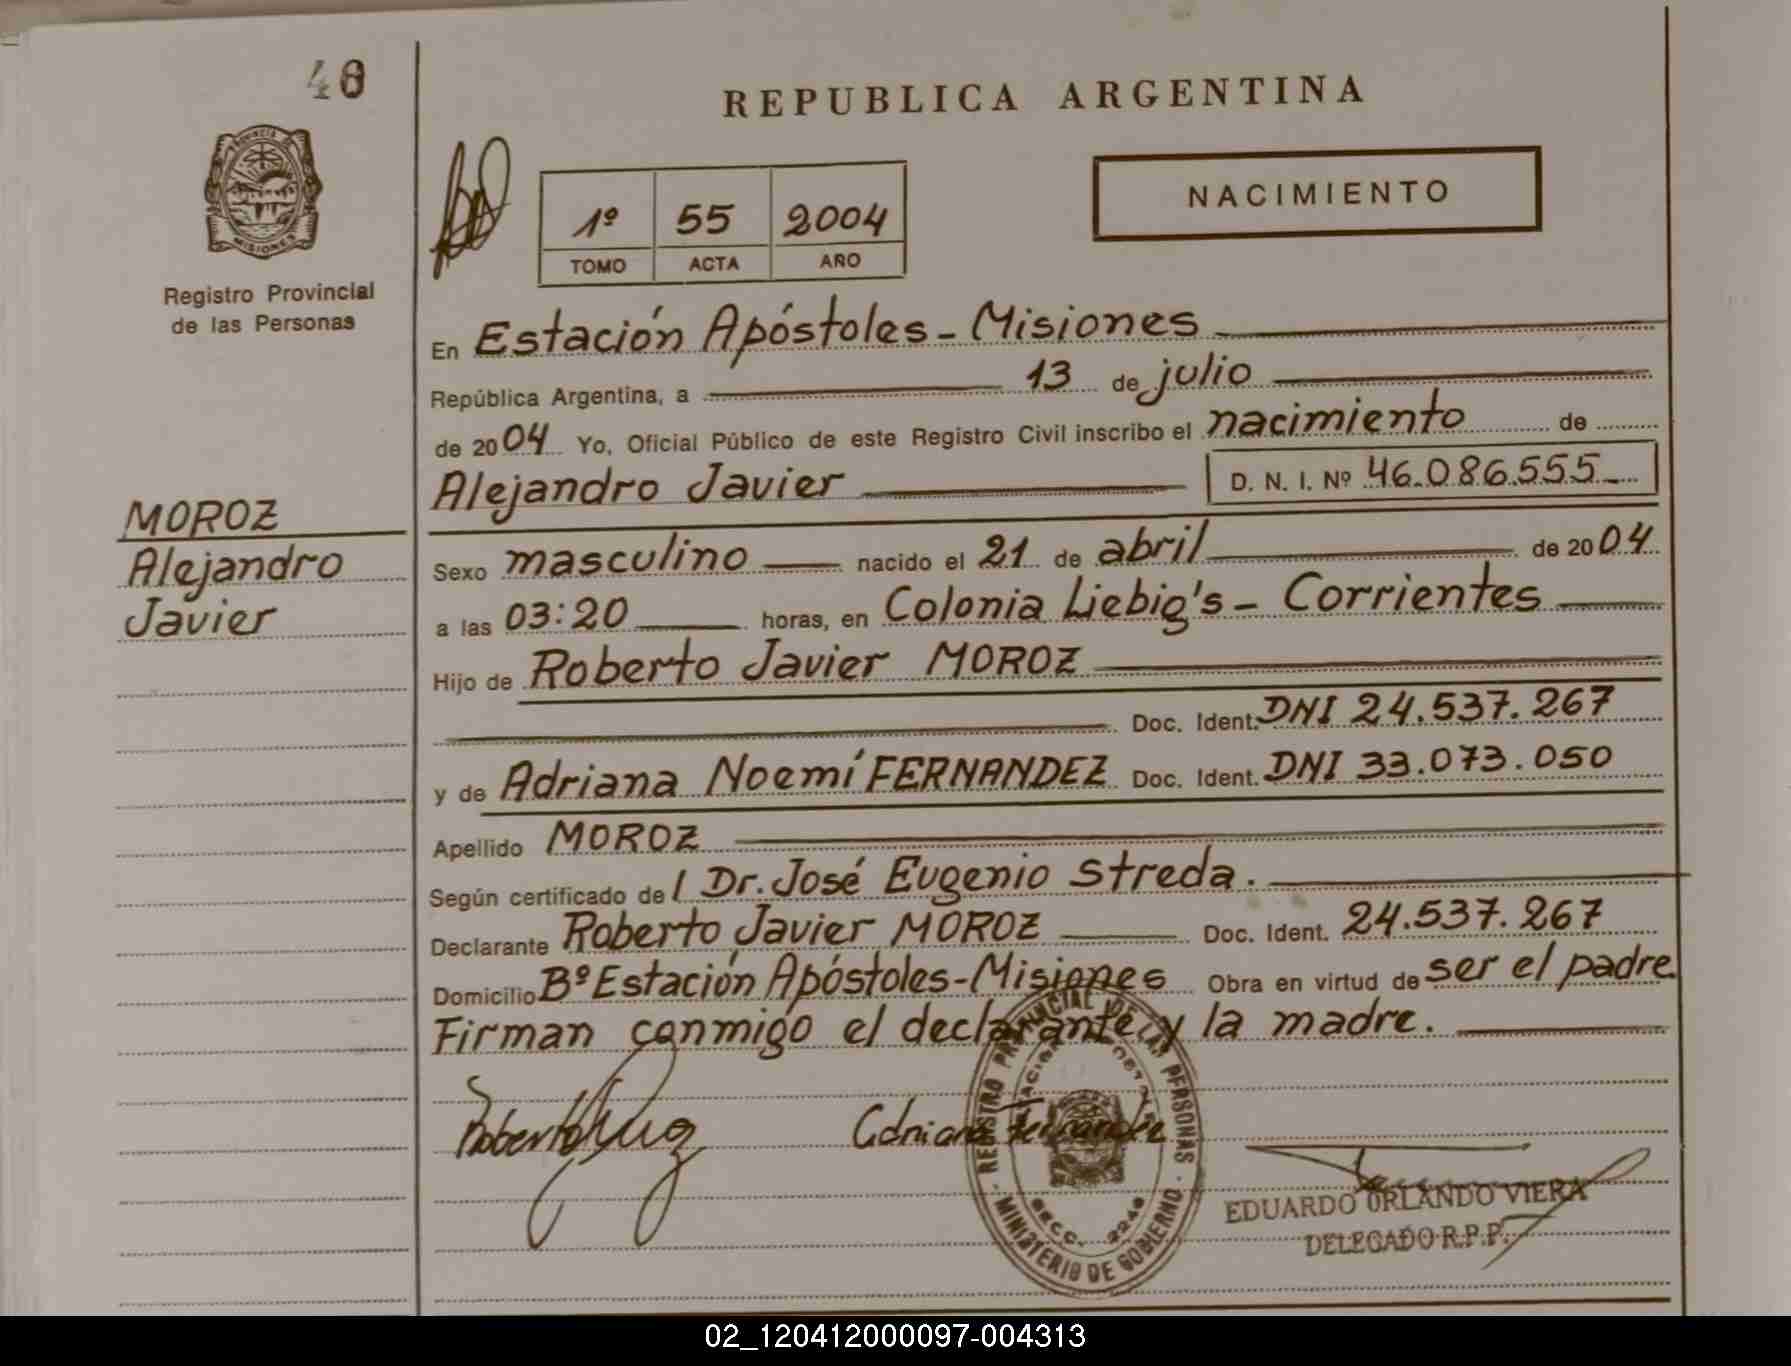 48
REPUBLICA ARGENTINA
PROVINCIA DE
MISIONES
Registro Provincial
de las Personas
1º 55 2004
TOMO ACTA AÑO
NACIMIENTO
En Estación Apóstoles - Misiones
República Argentina, a 13 de julio
de 2004 Yo, Oficial Público de este Registro Civil inscribo el nacimiento de
Alejandro Javier D. N. I. Nº 46.086.555
MOROZ
Alejandro
Javier
Sexo masculino nacido el 21 de abril de 2004
a las 03:20 horas, en Colonia Liebig's - Corrientes
Hijo de Roberto Javier MOROZ
Doc. Ident. DNI 24.537.267
y de Adriana Noemí FERNANDEZ Doc. Ident. DNI 33.073.050
Apellido MOROZ
Según certificado del Dr. José Eugenio Streda.
Declarante Roberto Javier MOROZ Doc. Ident. 24.537.267
Domicilio Bº Estación Apóstoles - Misiones Obra en virtud de ser el padre
Firman conmigo el declarante y la madre.
Adriana Fernández
REGISTRO PROVINCIAL DE LAS PERSONAS
MINISTERIO DE GOBIERNO
EDUARDO ORLANDO VIERA
DELEGADO R.P.P.
02_120412000097-004313